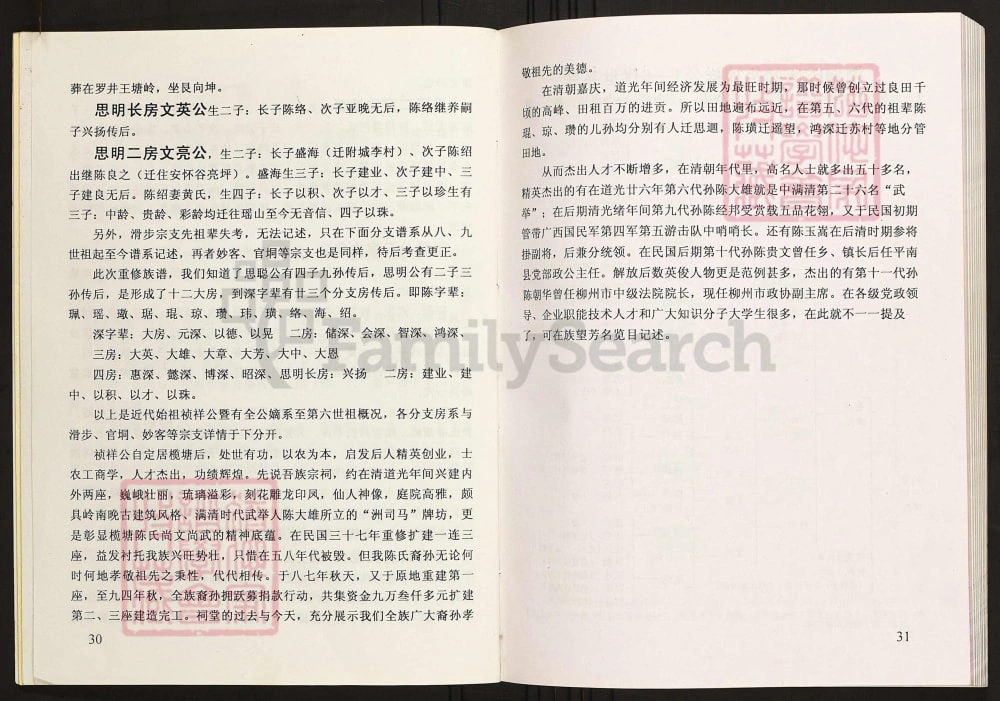 葬在罗井王塘岭，坐艮向坤。
思明长房文英公生二子：长子陈络、次子亚晚无后，陈络继养嗣
子兴扬传后。
思明二房文亮公，生二子：长子盛海（迁附城李村）、次子陈绍
出继陈良之（迁住安怀谷亮坪）。盛海生三子：长子建业、次子建中、三
子建良无后。陈绍妻黄氏，生四子：长子以积、次子以才、三子以珍生有
三子：中龄、贵龄、彩龄均迁往瑶山至今无音信、四子以珠。
另外，滑步宗支先祖辈失考，无法记述，只在下面分支谱系从八、九
世祖起至今谱系记述，再者妙客、官垌等宗支也是同样，待后考查更正。
此次重修族谱，我们知道了思聪公有四子九孙传后，思明公有二子三
孙传后，是形成了十二大房，到深字辈有廿三个分支房传后。即陈字辈：
珮、瑶、璥、琚、琨、琼、瓒、玮、璜、络、海、绍。
深字辈：大房、元深、以德、以晃　二房：储深、会深、智深、鸿深、
三房：大英、大雄、大章、大芳、大中、大恩
四房：惠深、懿深、博深、昭深、思明长房：兴扬　二房：建业、建
中、以积、以才、以珠。
以上是近代始祖祯祥公暨有全公嫡系至第六世祖概况，各分支房系与
滑步、官垌、妙客等宗支详情于下分开。
祯祥公自定居榄塘后，处世有功，以农为本，启发后人精英创业，士
农工商学，人才杰出，功绩辉煌。先说吾族宗祠，约在清道光年间兴建内
外两座，巍峨壮丽，琉璃溢彩，刻花雕龙印凤，仙人神像，庭院高雅，颇
具岭南晚古建筑风格、满清时代武举人陈大雄所立的“洲司马”牌坊，更
是彰显榄塘陈氏尚文尚武的精神底蕴。在民国三十七年重修扩建一连三
座，益发衬托我族兴旺势壮，只惜在五八年代被毁。但我陈氏裔孙无论何
时何地孝敬祖先之秉性，代代相传。于八七年秋天，又于原地重建第一
座，至九四年秋，全族裔孙拥跃募捐款行动，共集资金九万叁仟多元扩建
第二、三座建造完工。祠堂的过去与今天，充分展示我们全族广大裔孙孝
30
敬祖先的美德。
在清朝嘉庆，道光年间经济发展为最旺时期，那时候曾创立过良田千
顷的高峰、田租百万的进贡。所以田地遍布远近，在第五、六代的祖辈陈
琨、琼、瓒的儿孙均分别有人迁思迴，陈璜迁遥望，鸿深迁苏村等地分管
田地。
从而杰出人才不断增多，在清朝年代里，高名人士就多出五十多名，
精英杰出的有在道光廿六年第六代孙陈大雄就是中满清第二十六名“武
举”；在后期清光绪年间第九代孙陈经邦受赏载五品花翎，又于民国初期
管带广西国民军第四军第五游击队中哨哨长。还有陈玉嵩在后清时期参将
掛副将，后兼分统领。在民国后期第十代孙陈贵文曾任乡、镇长后任平南
县党部政公主任。解放后数英俊人物更是范例甚多，杰出的有第十一代孙
陈朝华曾任柳州市中级法院院长，现任柳州市政协副主席。在各级党政领
导、企业职能技术人才和广大知识分子大学生很多，在此就不一一提及
了，可在族望芳名览目记述。
31
FamilySearch